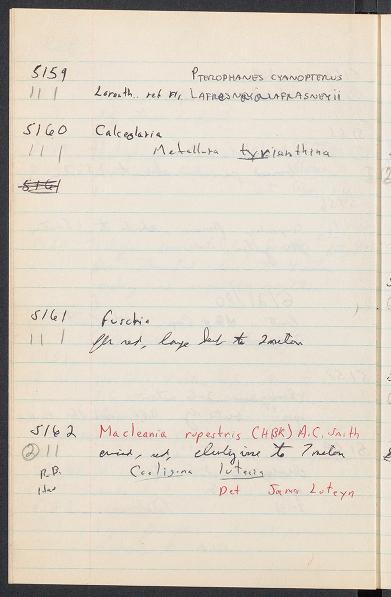 5159 PTEROPHANES CYANOPTERUS
111 1 Loranth.. red fl, LAFRESNAYA LAFRASNEYII
5160 Calceolaria
111 1 Metallura tyrianthina
5161
5161 Fuschia
11 1 red, large to 2 meters
5162 Macleania rupestris (HBK) A.C. Smith
2 11 red, climbing vine to 7 meters
R.B. Coeligena lutetia
Det James Luteyn